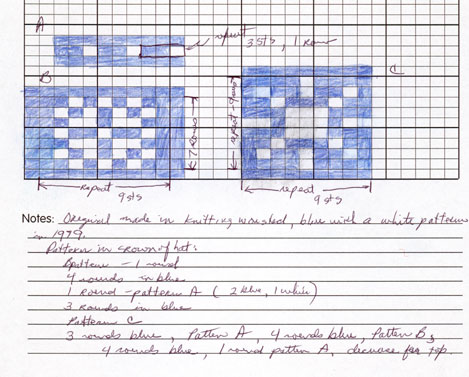 A
repeat
3 sts, 1 row
B
C
7 rows
repeat 9 rows
repeat
9 sts
repeat
9 sts
Notes: Original made in knitting worsted, blue with a white pattern
in 1979.
Pattern in crown of hat:
pattern - 1 round
4 rounds in blue
1 round - pattern A (2 blue, 1 white)
3 rounds in blue
Pattern C
3 rounds blue, Pattern A, 4 rounds blue, Pattern B,
4 rounds blue, 1 round pattern A, decrease for top.